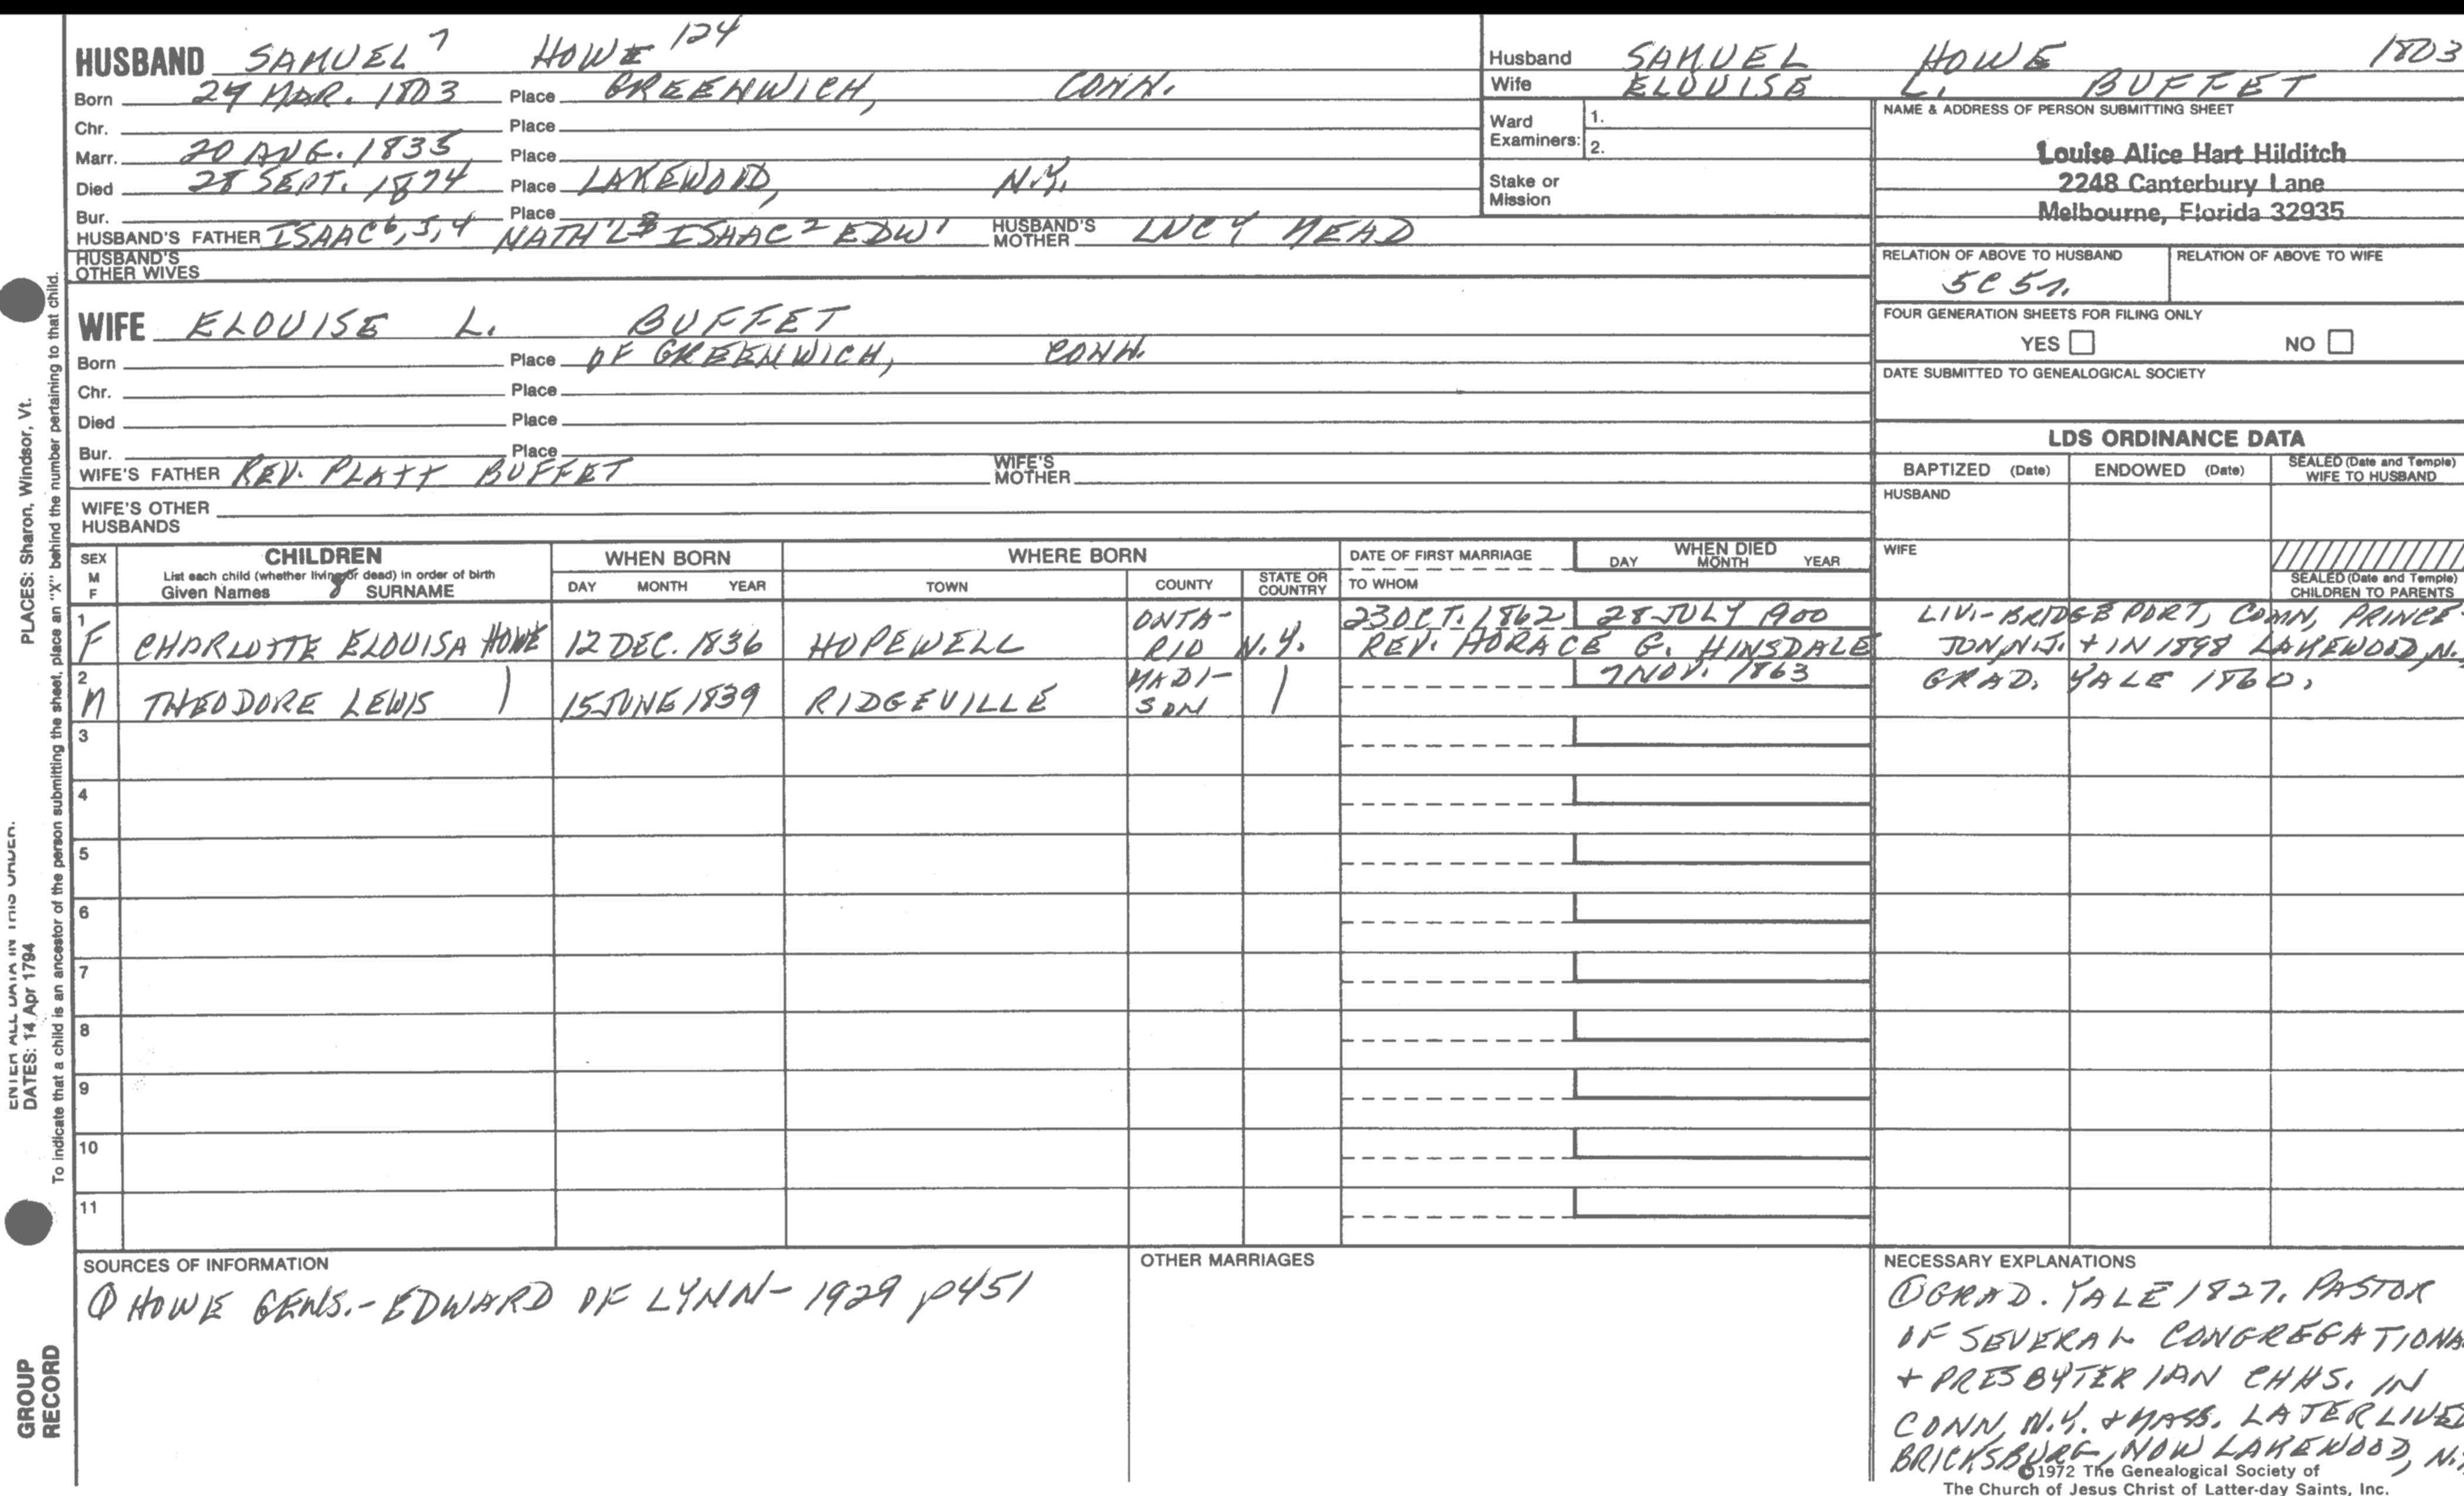 HUSBAND SAMUEL 7 HOWE 124
Born 29 MAR. 1803 Place GREENWICH, CONN.
Chr. Place
Marr. 20 AUG. 1835 Place
Died 28 SEPT. 1874 Place LAKEWOOD, N.Y.
Bur. Place
HUSBAND'S FATHER ISAAC 6, 5, 4 NATH'L 3 ISAAC 2 EDW 1 HUSBAND'S MOTHER LUCY MEAD
HUSBAND'S OTHER WIVES
WIFE ELOUISE L. BUFFET
Born Place OF GREENWICH, CONN.
Chr. Place
Died Place
Bur. Place
WIFE'S FATHER REV. PLATT BUFFET WIFE'S MOTHER
WIFE'S OTHER HUSBANDS
Husband SAMUEL HOWE 1803
Wife ELOUISE L. BUFFET
Ward Examiners: 1.
2.
Stake or Mission
NAME & ADDRESS OF PERSON SUBMITTING SHEET
Louise Alice Hart Hilditch
2248 Canterbury Lane
Melbourne, Florida 32935
RELATION OF ABOVE TO HUSBAND RELATION OF ABOVE TO WIFE
5C 5r.
FOUR GENERATION SHEETS FOR FILING ONLY
YES NO
DATE SUBMITTED TO GENEALOGICAL SOCIETY
LDS ORDINANCE DATA
BAPTIZED (Date) ENDOWED (Date) SEALED (Date and Temple) WIFE TO HUSBAND
HUSBAND
WIFE
SEALED (Date and Temple) CHILDREN TO PARENTS
SEX M F
CHILDREN
List each child (whether living or dead) in order of birth
Given Names SURNAME
WHEN BORN
DAY MONTH YEAR
WHERE BORN
TOWN COUNTY STATE OR COUNTRY
DATE OF FIRST MARRIAGE
TO WHOM
WHEN DIED
DAY MONTH YEAR
1 F CHARLOTTE ELOUISA HOWE 12 DEC. 1836 HOPEWELL ONTA-RIO N.Y. 23 OCT. 1862 28 JULY 1900
REV. HORACE G. HINSDALE
LIV.-BRIDGEPORT, CONN, PRINCE-
TON, N.J. + IN 1898 LAKEWOOD, N.
2 M THEODORE LEWIS | 15 JUNE 1839 RIDGEVILLE MADI-SON | 7 NOV. 1863
GRAD. YALE 1860.
3
4
5
6
7
8
9
10
11
SOURCES OF INFORMATION
① HOWE GENS.-EDWARD OF LYNN-1929 p451
OTHER MARRIAGES
NECESSARY EXPLANATIONS
① GRAD. YALE 1827. PASTOR
OF SEVERAL CONGREGATIONA
+ PRESBYTERIAN CHHS. IN
CONN, N.Y. + MASS. LATER LIVED
BRICKSBURG, NOW LAKEWOOD, N.
©1972 The Genealogical Society of
The Church of Jesus Christ of Latter-day Saints, Inc.
PLACES: Sharon, Windsor, Vt.
ENTER ALL DATA IN THIS ORDER.
DATES: 14 Apr 1794
To indicate that a child is an ancestor of the person submitting the sheet, place an "X" behind the number pertaining to that child.
GROUP
RECORD